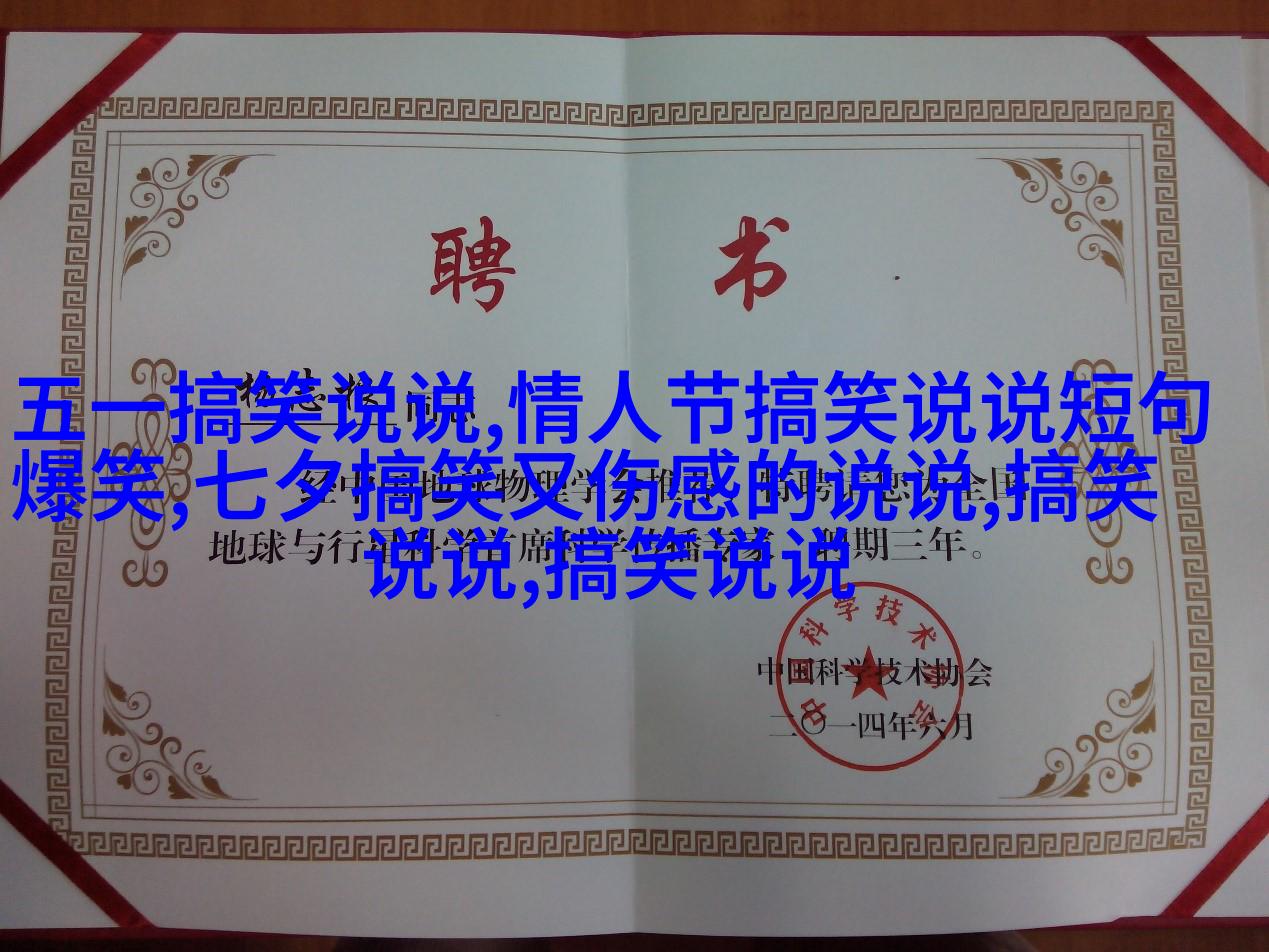 聘书
五一搞笑说说,情人节搞笑说说短句
爆笑,七夕搞笑又伤感的说说,搞笑
说说,搞笑说说
地球与行星科学首席科学传播专家 聘期三年。
中国科学技术协会
中国科学技术协会
二〇一四年六月